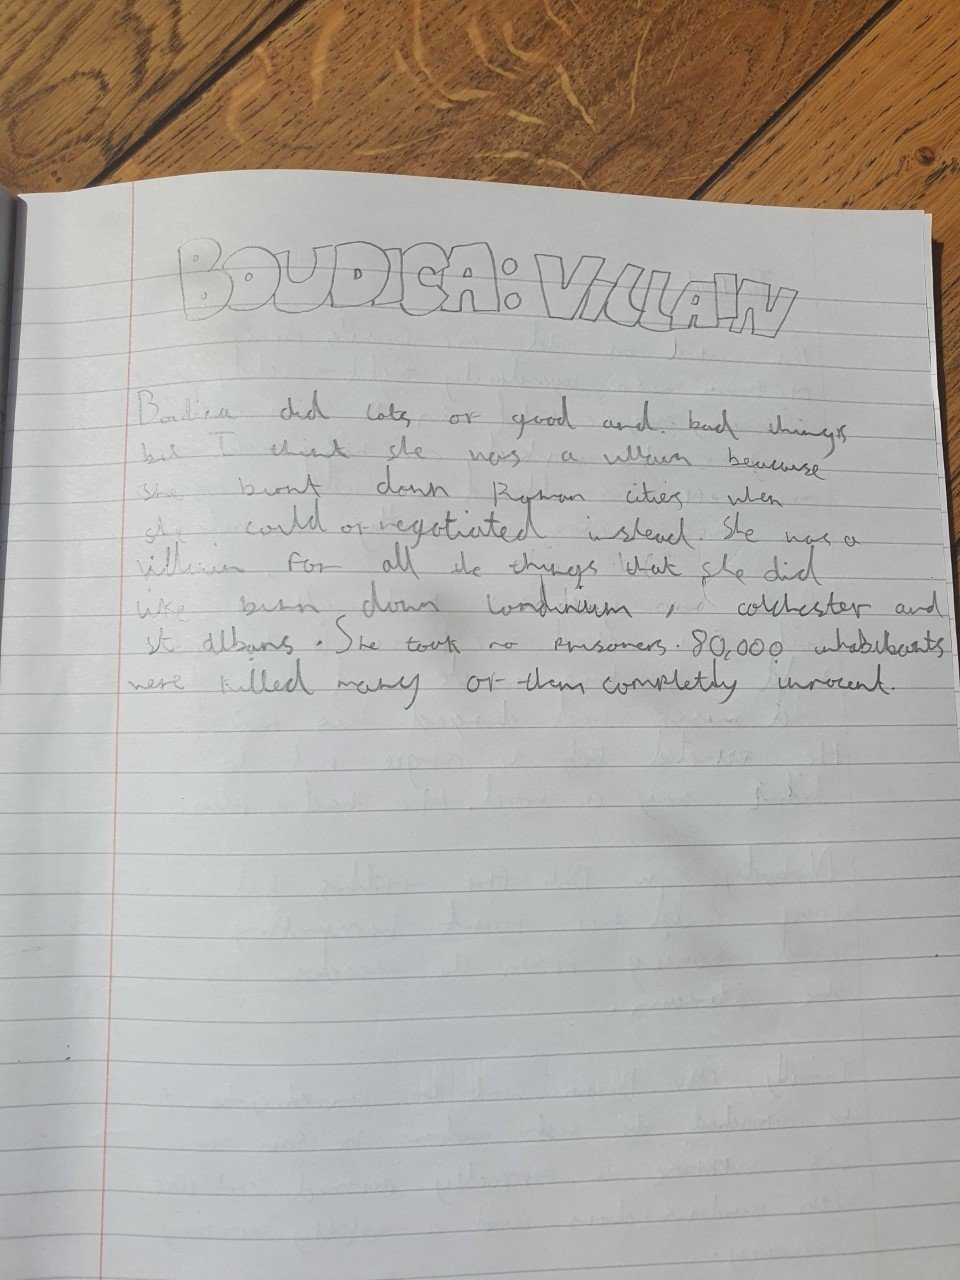 BOUDICA: VILLAIN
Boudica did lots of good and bad things
but I think she was a villain beacause
she burnt down Roman cities when
she could of negotiated instead. She was a
villain for all the things that she did
like burn down Londinium, colchester and
st albans. She took no prisoners. 80,000 inhabitants
were killed many of them completly innocent.